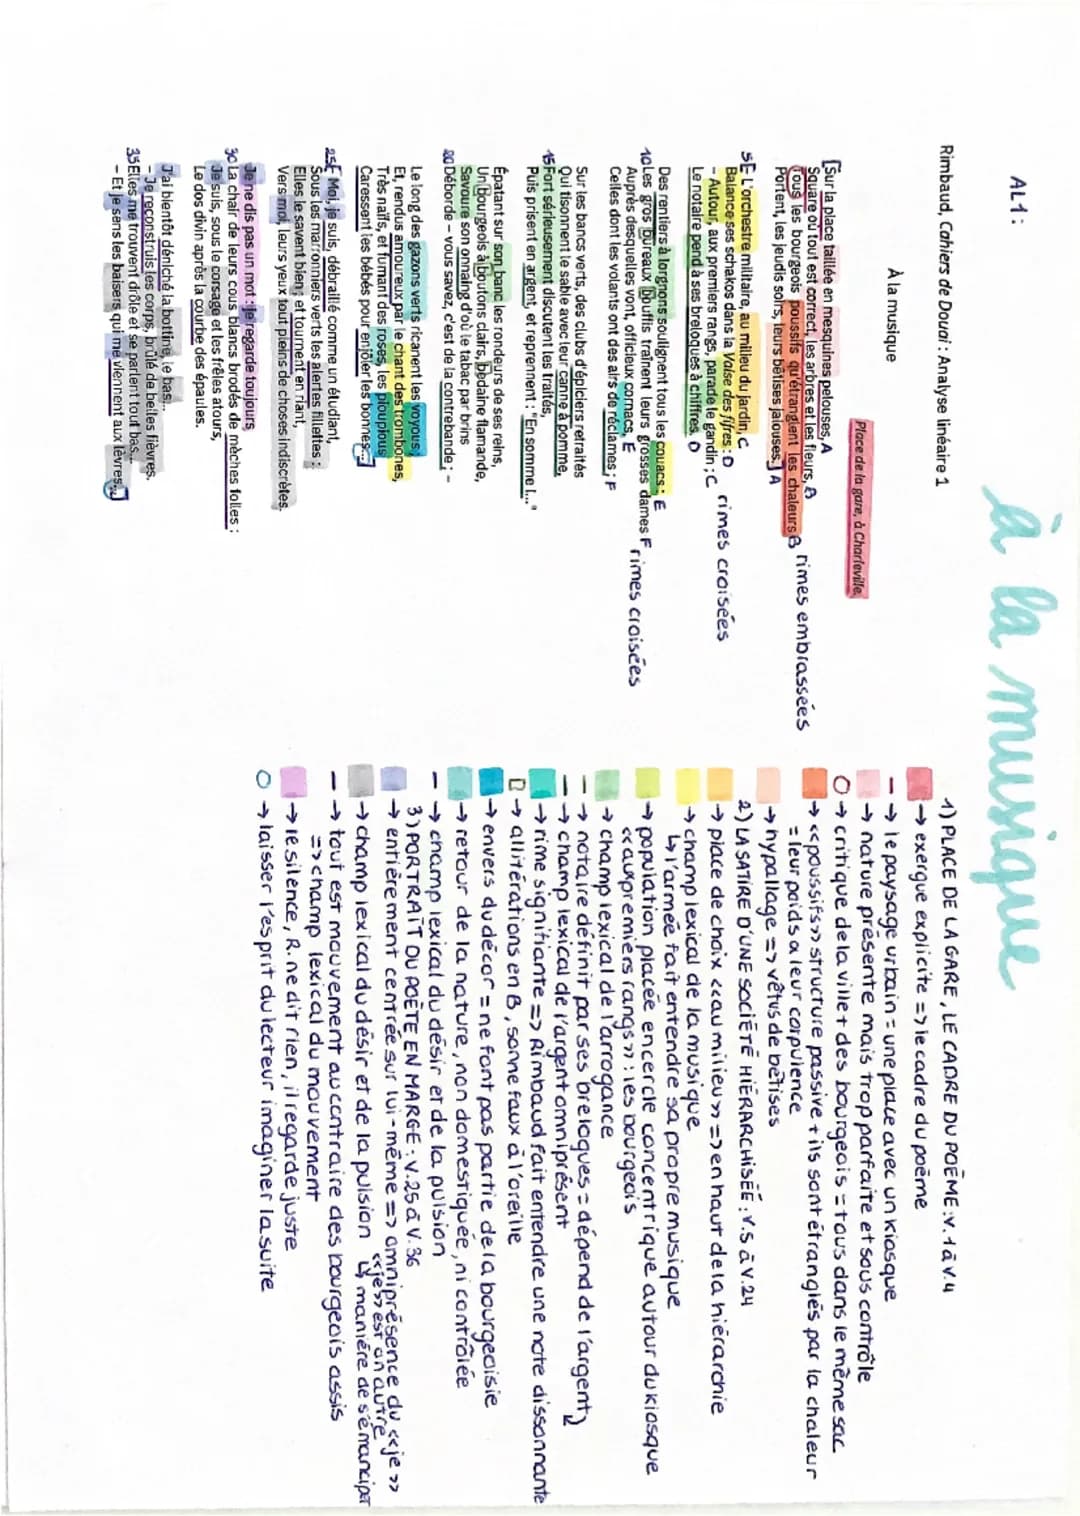 à la musique
AL1:
Rimbaud, Cahiers de Douai : Analyse linéaire 1
À la musique
Place de la gare, à Charleville.
[Sur la place taillée en mesquines pelouses, A
Square où tout est correct, les arbres et les fleurs, B
Tous les bourgeois poussifs qu'étranglent les chaleurs B rimes embrassées
Portent, les jeudis soirs, leurs bêtises jalouses.] A
5[- L'orchestre militaire, au milieu du jardin, C
Balance ses schakos dans la Valse des fifres : D
- Autour, aux premiers rangs, parade le gandin ; C rimes croisées
Le notaire pend à ses breloques à chiffres. D
Des rentiers à lorgnons soulignent tous les couacs : E
10Les gros bureaux bouffis traînent leurs grosses dames F
Auprès desquelles vont, officieux cornacs, E rimes croisées
Celles dont les volants ont des airs de réclames ; F
Sur les bancs verts, des clubs d'épiciers retraités
Qui tisonnent le sable avec leur canne à pomme,
15Fort sérieusement discutent les traités,
Puis prisent en argent, et reprennent : "En somme !..."
Épatant sur son banc les rondeurs de ses reins,
Un bourgeois à boutons clairs, bedaine flamande,
Savoure son onnaing d'où le tabac par brins
20Déborde – vous savez, c'est de la contrebande ; –
Le long des gazons verts ricanent les voyous ;
Et, rendus amoureux par le chant des trombones,
Très naïfs, et fumant des roses, les pioupious
Caressent les bébés pour enjôler les bonnes...]
25[- Moi, je suis, débraillé comme un étudiant,
Sous les marronniers verts les alertes fillettes :
Elles le savent bien ; et tournent en riant,
Vers moi, leurs yeux tout pleins de choses indiscrètes.
Je ne dis pas un mot : je regarde toujours
30La chair de leurs cous blancs brodés de mèches folles :
Je suis, sous le corsage et les frêles atours,
Le dos divin après la courbe des épaules.
J'ai bientôt déniché la bottine, le bas...
- Je reconstruis les corps, brûlé de belles fièvres.
35Elles me trouvent drôle et se parlent tout bas...
- Et je sens les baisers qui me viennent aux lèvres...]
1) PLACE DE LA GARE, LE CADRE DU POÈME : V.1 à V.4
→ exergue explicite => le cadre du poème
- → le paysage urbain = une place avec un kiosque
→ nature présente mais trop parfaite et sous contrôle
→ critique de la ville + des bourgeois = tous dans le même sac
→ <<poussifs>> structure passive + ils sont étranglés par la chaleur
= leur poids & leur corpulence
→ hypallage => vêtus de bêtises
2) LA SATIRE D'UNE SOCIÉTÉ HIÉRARCHISÉE : V.5 à V.24
→ place de choix <<au milieu>> => en haut de la hiérarchie
→ champ lexical de la musique
↳ l'armée fait entendre sa propre musique
→ population placée en cercle concentrique autour du kiosque
<<aux premiers rangs>> : les bourgeois
→ champ lexical de l'arrogance
- → notaire définit par ses breloques = dépend de l'argent
- → champ lexical de l'argent omniprésent
→ rime signifiante => Rimbaud fait entendre une note dissonnante
→ allitérations en B, sonne faux à l'oreille
→ envers du décor = ne font pas partie de la bourgeoisie
→ retour de la nature, non domestiquée, ni contrôlée
- → champ lexical du désir et de la pulsion
3) PORTRAIT DU POÈTE EN MARGE : V.25 à V.36
→ entièrement centrée sur lui-même => omniprésence du <<je>>
<<je>> est un autre
→ champ lexical du désir et de la pulsion ↳ manière de s'émanciper
- → tout est mouvement au contraire des bourgeois assis
=> champ lexical du mouvement
→ le silence, R. ne dit rien, il regarde juste
→ laisser l'esprit du lecteur imaginer la suite